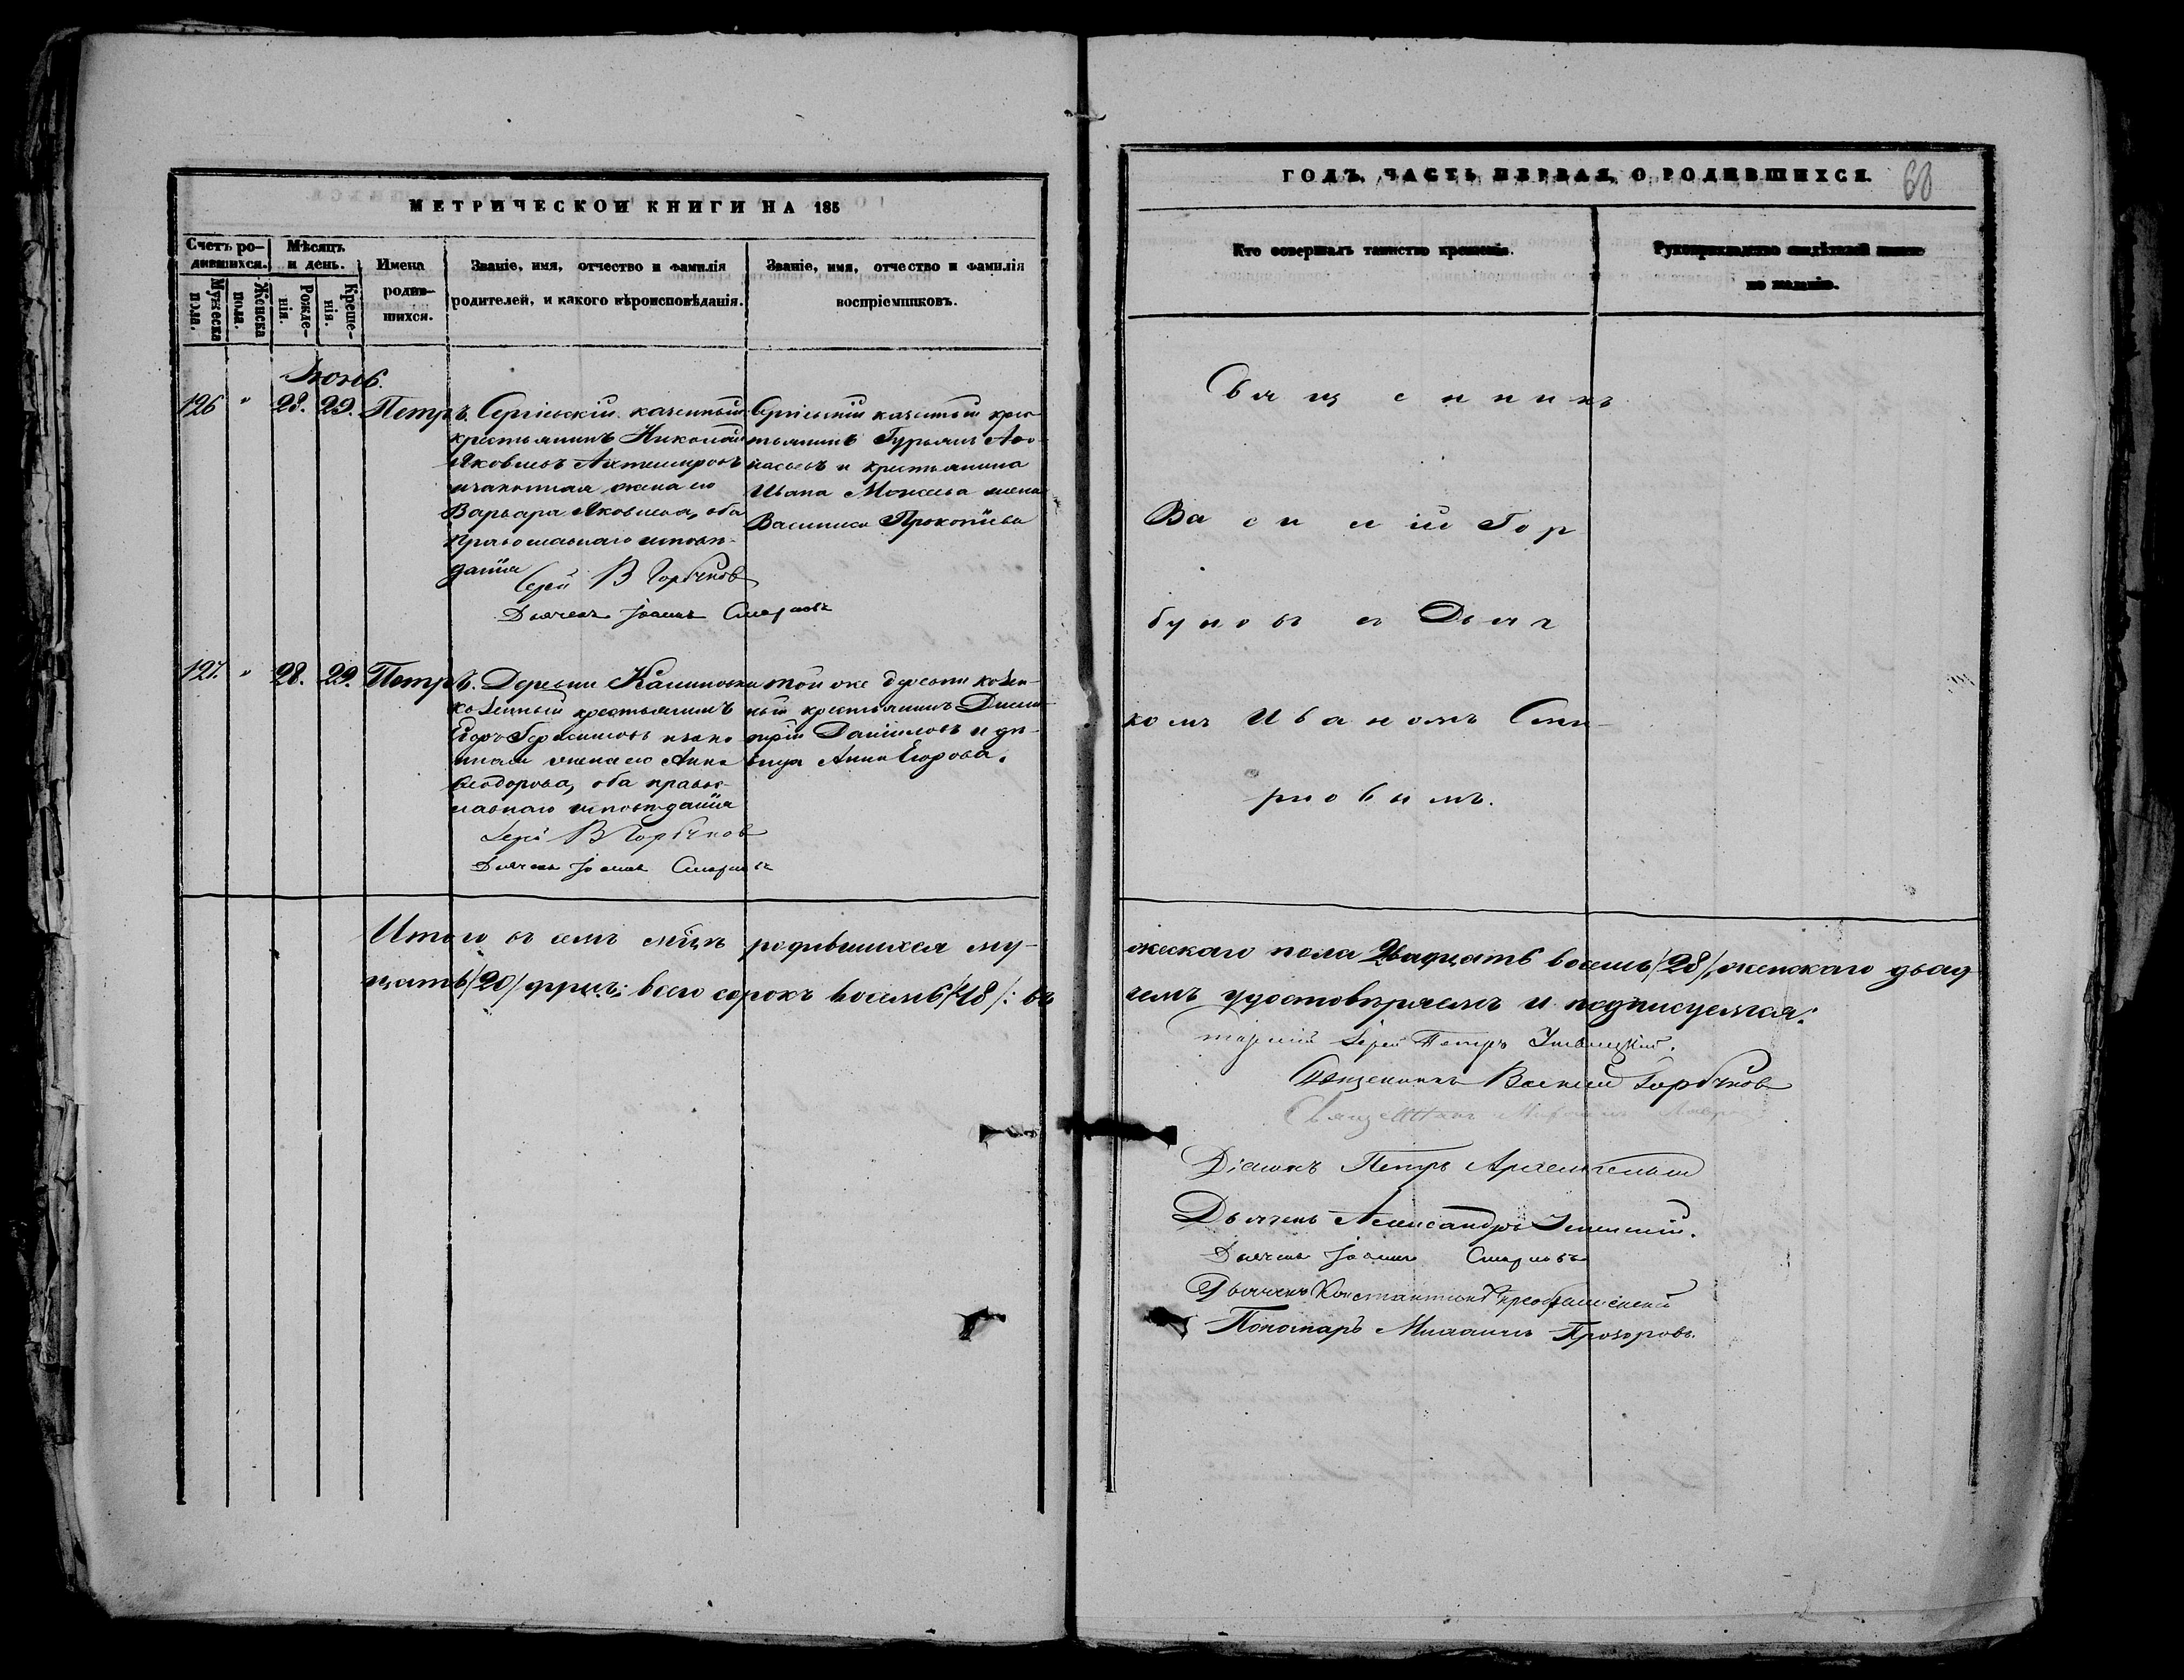 МЕТРИЧЕСКОЙ КНИГИ НА 185
Счетъ ро-
дившихся.
Мѣсяцъ
и день.
Мужеска
пола.
Женска
пола.
Рожде-
нія.
Креще-
нія.
Имена
родив-
шихся.
Званіе, имя, отчество и фамилія
родителей, и какого вѣроисповѣданія.
Званіе, имя, отчество и фамилія
воспріемниковъ.
Іюнь.
126 " 28. 29. Петръ.
Сергіевскій казенный
крестьянинъ Николай
Яковлевъ
и законная жена его
Варвара Яковлева, оба
православнаго исповѣ-
данія
Іерей В Горбуновъ
Дьячекъ Іоаннъ Смирновъ
Сергіевскій казенный крес-
тьянинъ Гурьянъ Афо-
насьевъ и крестьянина
Ивана Моисева жена
Василиса Прокопіева
127. " 28. 29. Петръ.
Деревни Калиновки
казенный крестьянинъ
Егоръ Герасимовъ и зако
нная жена его Анна
Ѳеодорова, оба правос-
лавнаго исповѣданія
Іерей В Горбуновъ
Дьячекъ Іоаннъ Смирновъ
той же деревни казен-
ный крестьянинъ Дими-
трій Даниловъ и дѣ-
вица Анна Егорова.
Итого въ семъ мѣцѣ родившихся му-
цать /20/ всего сорокъ восемь /48/: въ
ГОДЪ, ЧАСТЬ ПЕРВАЯ, О РОДИВШИХСЯ.
68
Кто совершалъ таинство крещенія.
Рукоприкладство свидѣтелей записи
по желанію.
Священникъ
Василій Гор
буновъ съ Дьяч
комъ Иваномъ Сми-
рновымъ.
жескаго пола двадцать восемь /28/, женскаго двад
чемъ удостовѣряемъ и подписуемся:
Іерей Петръ
Священникъ Василій Горбуновъ
Священникъ
Діаконъ Петръ Архангельскій
Дьячекъ Александръ
Дьячекъ Іоаннъ Смирновъ
Дьячекъ Константинъ Преображенскій
Пономарь Михаилъ Прозоровъ.